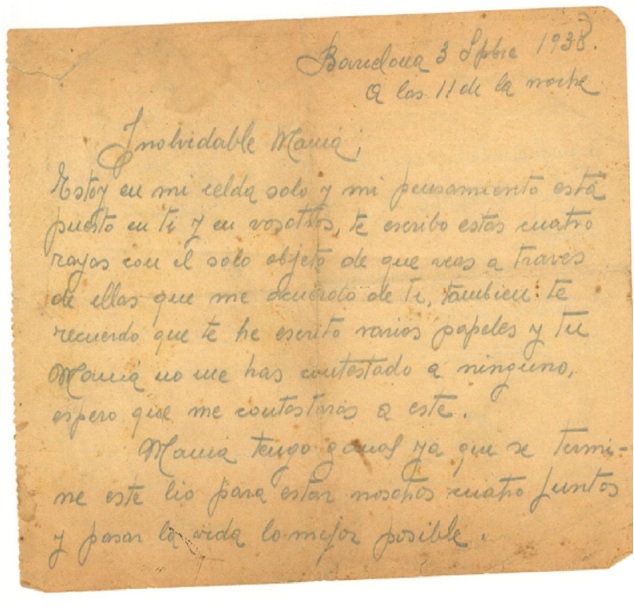 Barcelona 3 Spbre 1938.
a las 11 de la noche
Inolvidable Maria;
Estoy en mi celda solo y mi pensamiento está
puesto en ti y en vosotros, te escribo estas cuatro
rayas con el solo objeto de que veas a traves
de ellas que me acuerdo de ti, tambien te
recuerdo que te he escrito varios papeles y tu
Maria no me has contestado a ninguno,
espero que me contestarás a este.
Maria tengo ganas ya que se termi-
ne este lio para estar nosotros cuatro juntos
y pasar la vida lo mejor posible.